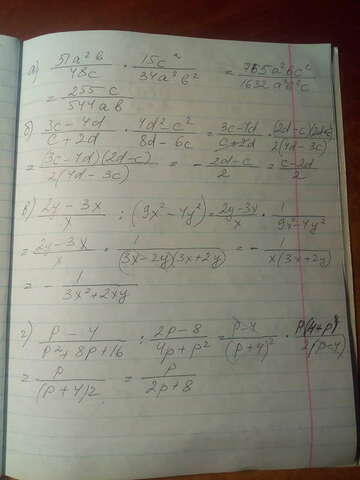 а) 51a²b/48c · 15c²/34a²b² = 765a²bc²/1632a²b²c
= 255c/544ab
б) 3c-4d/c+2d · 4d²-c²/8d-6c = 3c-4d/c+2d · (2d-c)(2d+c)/2(4d-3c)
= (3c-4d)(2d-c)/2(4d-3c) = - 2d-c/2 = c-2d/2
в) 2y-3x/x : (9x²-4y²) = 2y-3x/x · 1/9x²-4y²
= 2y-3x/x · 1/(3x-2y)(3x+2y) = - 1/x(3x+2y)
= - 1/3x²+2xy
г) p-4/p²+8p+16 : 2p-8/4p+p² = p-4/(p+4)² · p(4+p)/2(p-4)
= p/(p+4)2 = p/2p+8